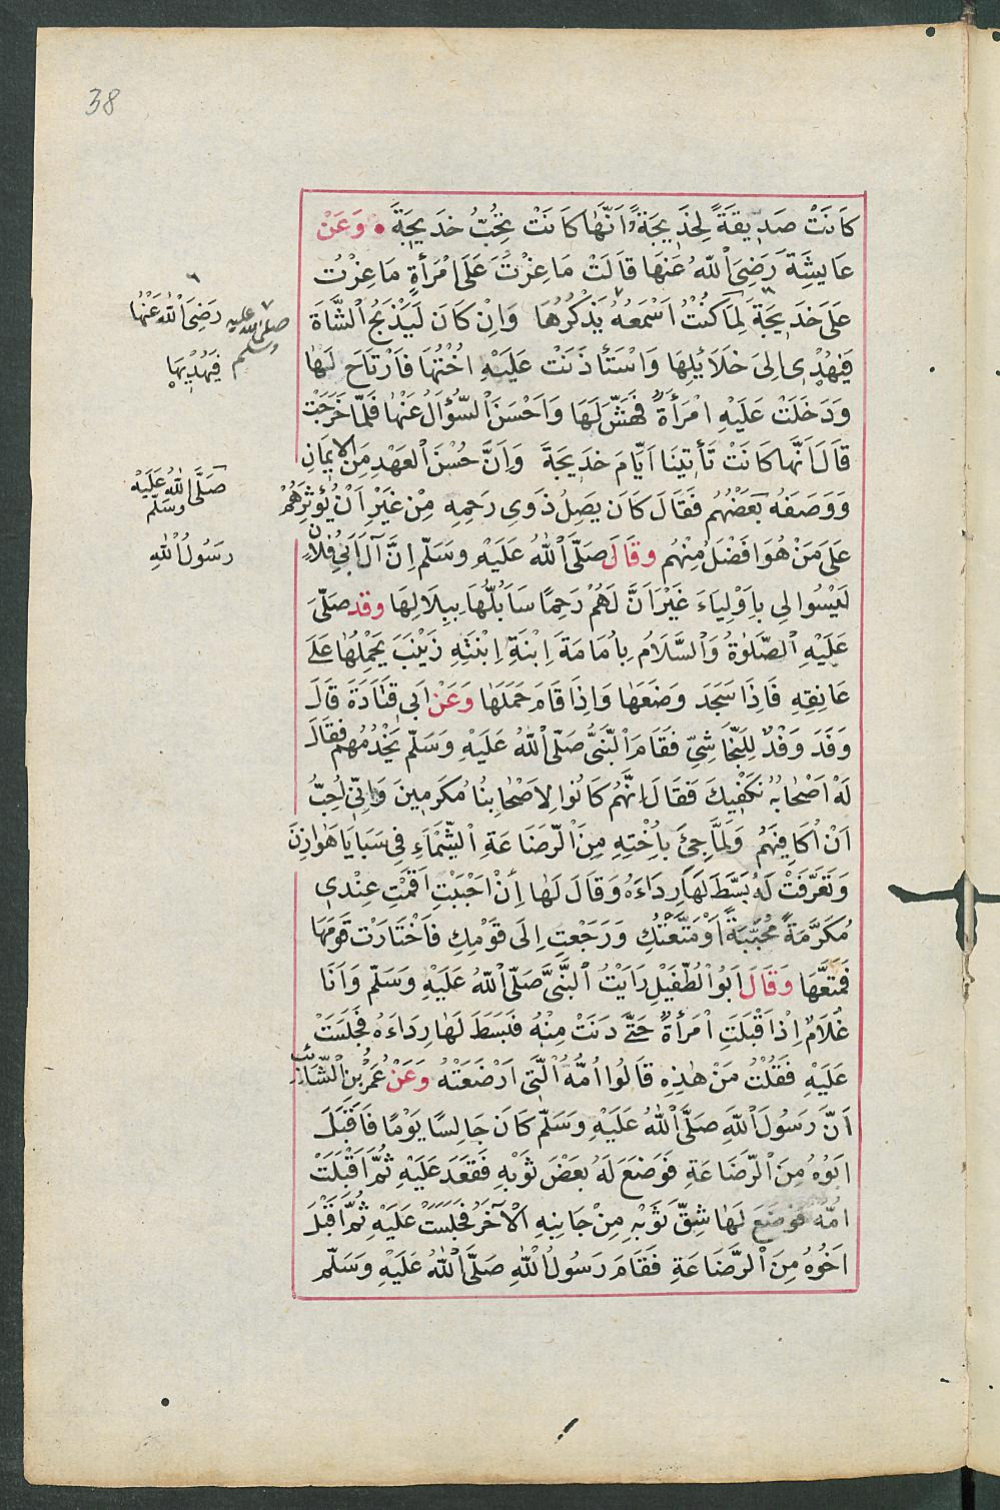 38
كَانَتْ صَدِيقَةً لِخَدِيجَةَ اَنَّهَا كَانَتْ تُحِبُّ خَدِيجَةَ وَعَنْ
عَايِشَةَ رَضِىَ اللّٰهُ عَنْهَا قَالَتْ مَا غِرْتُ عَلَى امْرَأَةٍ مَا غِرْتُ
عَلَى خَدِيجَةَ لِمَا كُنْتُ اَسْمَعُهُ يَذْكُرُهَا وَاِنْ كَانَ لَيَذْبَحُ الشَّاةَ
فَيُهْدِى اِلَى خَلَائِلِهَا وَاسْتَأْذَنَتْ عَلَيْهِ اُخْتُهَا فَارْتَاحَ لَهَا
وَدَخَلَتْ عَلَيْهِ امْرَأَةٌ فَهَشَّ لَهَا وَاَحْسَنَ السُّؤَالَ عَنْهَا فَلَمَّا خَرَجَتْ
قَالَ اَنَّهَا كَانَتْ تَأْتِينَا اَيَّامَ خَدِيجَةَ وَاِنَّ حُسْنَ الْعَهْدِ مِنَ الْاِيمَانِ
وَوَصَفَهُ بَعْضُهُمْ فَقَالَ كَانَ يَصِلُ ذَوِى رَحِمِهِ مِنْ غَيْرِ اَنْ يُؤْثِرَهُمْ
عَلَى مَنْ هُوَ اَفْضَلُ مِنْهُمْ وَقَالَ صَلَّى اللّٰهُ عَلَيْهِ وَسَلَّمَ اِنَّ آلَ اَبِى فُلَانٍ
لَيْسُوا لِى بِاَوْلِيَاءَ غَيْرَ اَنَّ لَهُمْ رَحِمًا سَاَبُلُّهَا بِبِلَالِهَا وَقَد صَلَّى
عَلَيْهِ الصَّلٰوةُ وَالسَّلَامُ بِاُمَامَةَ اِبْنَةِ اِبْنَتِهِ زَيْنَبَ يَحْمِلُهَا عَلَى
عَاتِقِهِ فَاِذَا سَجَدَ وَضَعَهَا وَاِذَا قَامَ حَمَلَهَا وَعَنْ اَبِى قَتَادَةَ قَالَ
وَفَدَ وَفْدٌ لِلنَّجَاشِىِّ فَقَامَ النَّبِىُّ صَلَّى اللّٰهُ عَلَيْهِ وَسَلَّمَ يَخْدُمُهُمْ فَقَالَ
لَهُ اَصْحَابُهُ نَكْفِيكَ فَقَالَ اِنَّهُمْ كَانُوا لِاَصْحَابِنَا مُكْرَمِينَ وَاِنِّى اُحِبُّ
اَنْ اُكَافِيَهُمْ وَلَمَّا جِئَ بِاُخْتِهِ مِنَ الرَّضَاعَةِ الشَّيْمَاءِ فِى سَبَايَا هَوَازِنَ
وَتَعَرَّفَتْ لَهُ بَسَّطَ لَهَا رِدَاءَهُ وَقَالَ لَهَا اِنْ اَحْبَبْتِ اَقَمْتِ عِنْدِى
مُكَرَّمَةً مُحَبَّبَةً اَوْ مَتَّعْتُكِ وَرَجَعْتِ اِلَى قَوْمِكِ فَاخْتَارَتْ قَوْمَهَا
فَمَتَّعَهَا وَقَالَ اَبُو الطُّفَيْلِ رَاَيْتُ النَّبِىَّ صَلَّى اللّٰهُ عَلَيْهِ وَسَلَّمَ وَاَنَا
غُلَامٌ اِذْ اَقْبَلَتِ امْرَأَةٌ حَتَّى دَنَتْ مِنْهُ فَبَسَطَ لَهَا رِدَاءَهُ فَجَلَسَتْ
عَلَيْهِ فَقُلْتُ مَنْ هٰذِهِ قَالُوا اُمُّهُ الَّتِى اَرْضَعَتْهُ وَعَنْ عُمَرَ بْنِ السَّائِبِ
اَنَّ رَسُولَ اللّٰهِ صَلَّى اللّٰهُ عَلَيْهِ وَسَلَّمَ كَانَ جَالِسًا يَوْمًا فَاَقْبَلَ
اَبُوهُ مِنَ الرَّضَاعَةِ فَوَضَعَ لَهُ بَعْضَ ثَوْبِهِ فَقَعَدَ عَلَيْهِ ثُمَّ اَقْبَلَتْ
اُمُّهُ فَوَضَعَ لَهَا شِقَّ ثَوْبِهِ مِنْ جَانِبِهِ الْآخَرِ فَجَلَسَتْ عَلَيْهِ ثُمَّ اَقْبَلَ
اَخُوهُ مِنَ الرَّضَاعَةِ فَقَامَ رَسُولُ اللّٰهِ صَلَّى اللّٰهُ عَلَيْهِ وَسَلَّمَ
صلى اللّٰه عليه وسلم رَضِىَ اللّٰهُ عَنْهَا
فَيُهْدِيهَا
صَلَّى اللّٰهُ عَلَيْهِ وَسَلَّمَ
رَسُولُ اللّٰهِ